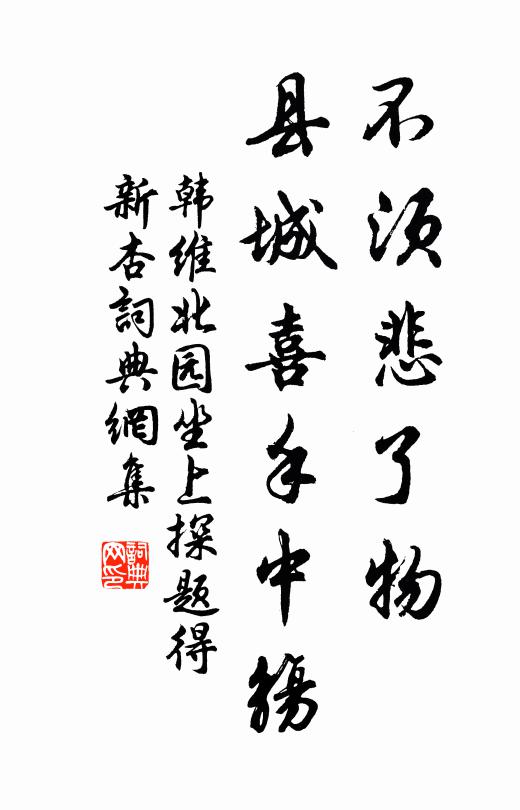 不须悲了物
县城喜手中觞
韩维北园坐上探题得
新杏詞典網集
詞典
网印